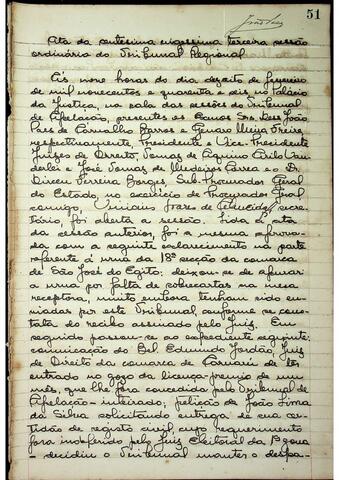 51
Ata da centesima vigessima terceira sessão
ordinária do Tribunal Regional
Ás nove horas do dia dezoito de fevereiro
de mil novecentos e quarenta e seis, no Palácio
da Justiça, na sala das sessões do Tribunal
de Apelação, presentes os Exmos Srs. Des. João
Paes de Carvalho Barros e Genaro Freire,
respectivamente, Presidente e Vice-Presidente
Juizes de Direito, Tomas de Aquino Cirilo Wan-
derlei e José Tomas de Medeiros Correa e o Dr.
Dirceu Ferreira Borges, Sub-Procurador Geral
do Estado, no exercicio de Procurador Geral
comigo, Soares de secre-
tário, foi aberta a sessão. Lida a ata
da sessão anterior, foi a mesma aprova-
da com a seguinte esclarecimento na parte
referente á urna da 18ª secção da comarca
de São José do Egito: deixou-se de apurar
a urna por falta de sobrecartas na mesa
receptora, muito embora tenham sido en-
viadas por este Tribunal, conforme se cons-
tata do recibo assinado pelo Juiz. Em
seguida passou-se ao expediente seguinte:
comunicação do Bel. Edmundo Jordão, Juiz
de Direito da comarca de de ter
entrado no gozo da licença-premio de um
mês, que lhe fora concedida pelo Tribunal de
Apelação - inteirado; petição de João Lima
da Silva solicitando entrega de sua cer-
tidão de registo civil, cujo requerimento
fora indeferido pelo Juiz Eleitoral da 1ª zona
- decidiu o Tribunal manter o despa-